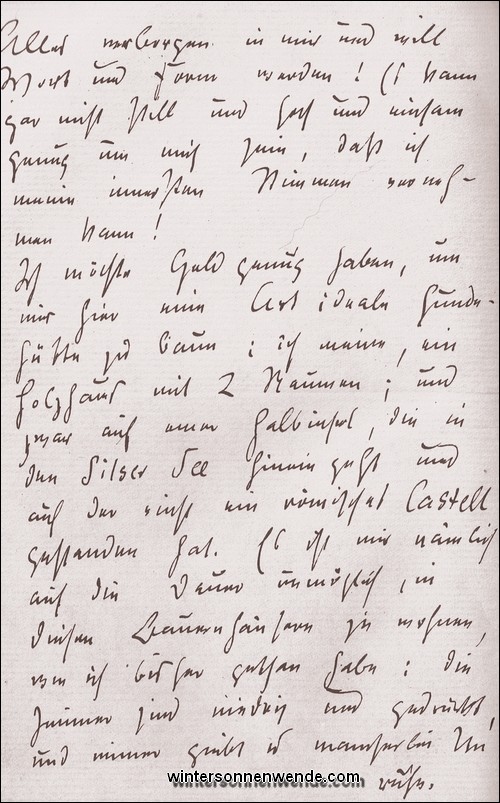 Alles verborgen in mir und will
Wort und Form werden! Es kann
gar nicht still und hoch und einsam
genug um mich sein, daß ich
meine innersten Stimmen verneh-
men kann!
Ich möchte Geld genug haben, um
mir hier eine Art ideale Hunde-
hütte zu baun: ich meine, ein
Holzhaus mit 2 Räumen; und
zwar auf einer Halbinsel, die in
den Silser See hinein geht und
auf der einst ein römisches Castell
gestanden hat. Es ist mir nämlich
auf die Dauer unmöglich, in
diesen Bauernhäusern zu wohnen,
wie ich bisher gethan habe: die
Zimmer sind niedrig und gedrückt,
und immer giebt es mancherlei Un
ruhe.
wintersonnenwende.com